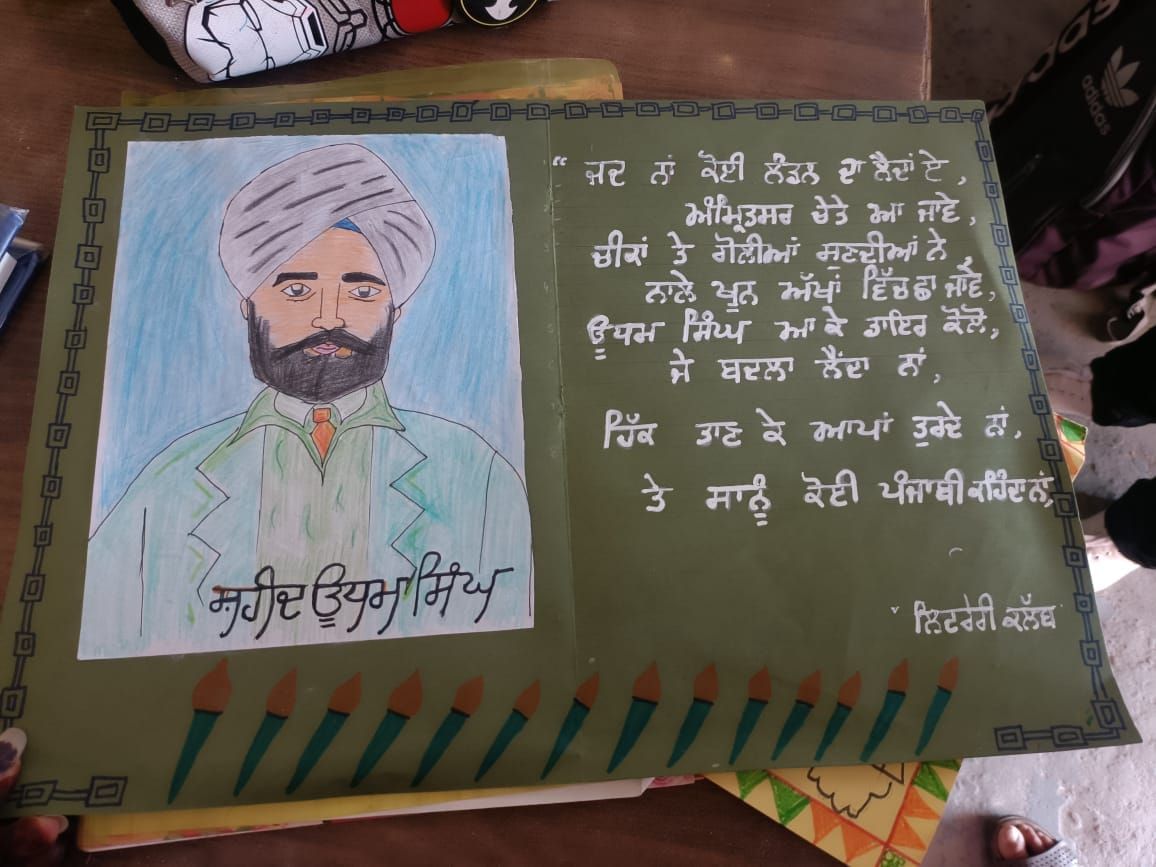 ਸ਼ਹੀਦ ਊਧਮ ਸਿੰਘ
“ ਜਦ ਨਾਂ ਕੋਈ ਲੰਡਨ ਦਾ ਲੈਂਦਾਂ ਏ,
ਅੰਮ੍ਰਿਤਸਰ ਚੇਤੇ ਆ ਜਾਵੇ,
ਚੀਕਾਂ ਤੇ ਗੋਲੀਆਂ ਸੁਣਦੀਆਂ ਨੇ,
ਨਾਲੇ ਖੂਨ ਅੱਖਾਂ ਵਿੱਚ ਛਾ ਜਾਵੇ,
ਊਧਮ ਸਿੰਘ ਆ ਕੇ ਡਾਇਰ ਕੋਲੋਂ,
ਜੇ ਬਦਲਾ ਲੈਂਦਾ ਨਾਂ,
ਹਿੱਕ ਤਾਣ ਕੇ ਆਪਾਂ ਤੁਰਦੇ ਨਾਂ,
ਤੇ ਸਾਨੂੰ ਕੋਈ ਪੰਜਾਬੀ ਕਹਿੰਦਾ ਨਾਂ,
ਲਿਟਰੇਰੀ ਕਲੱਬ
adidas